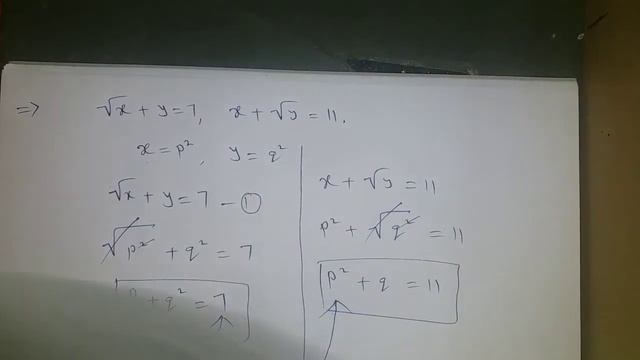 ⇒ √x + y = 7, x + √y = 11.
x = p², y = q²
√x + y = 7 — ①
√p² + q² = 7
+ q² = 7
x + √y = 11
p² + √q² = 11
p² + q = 11